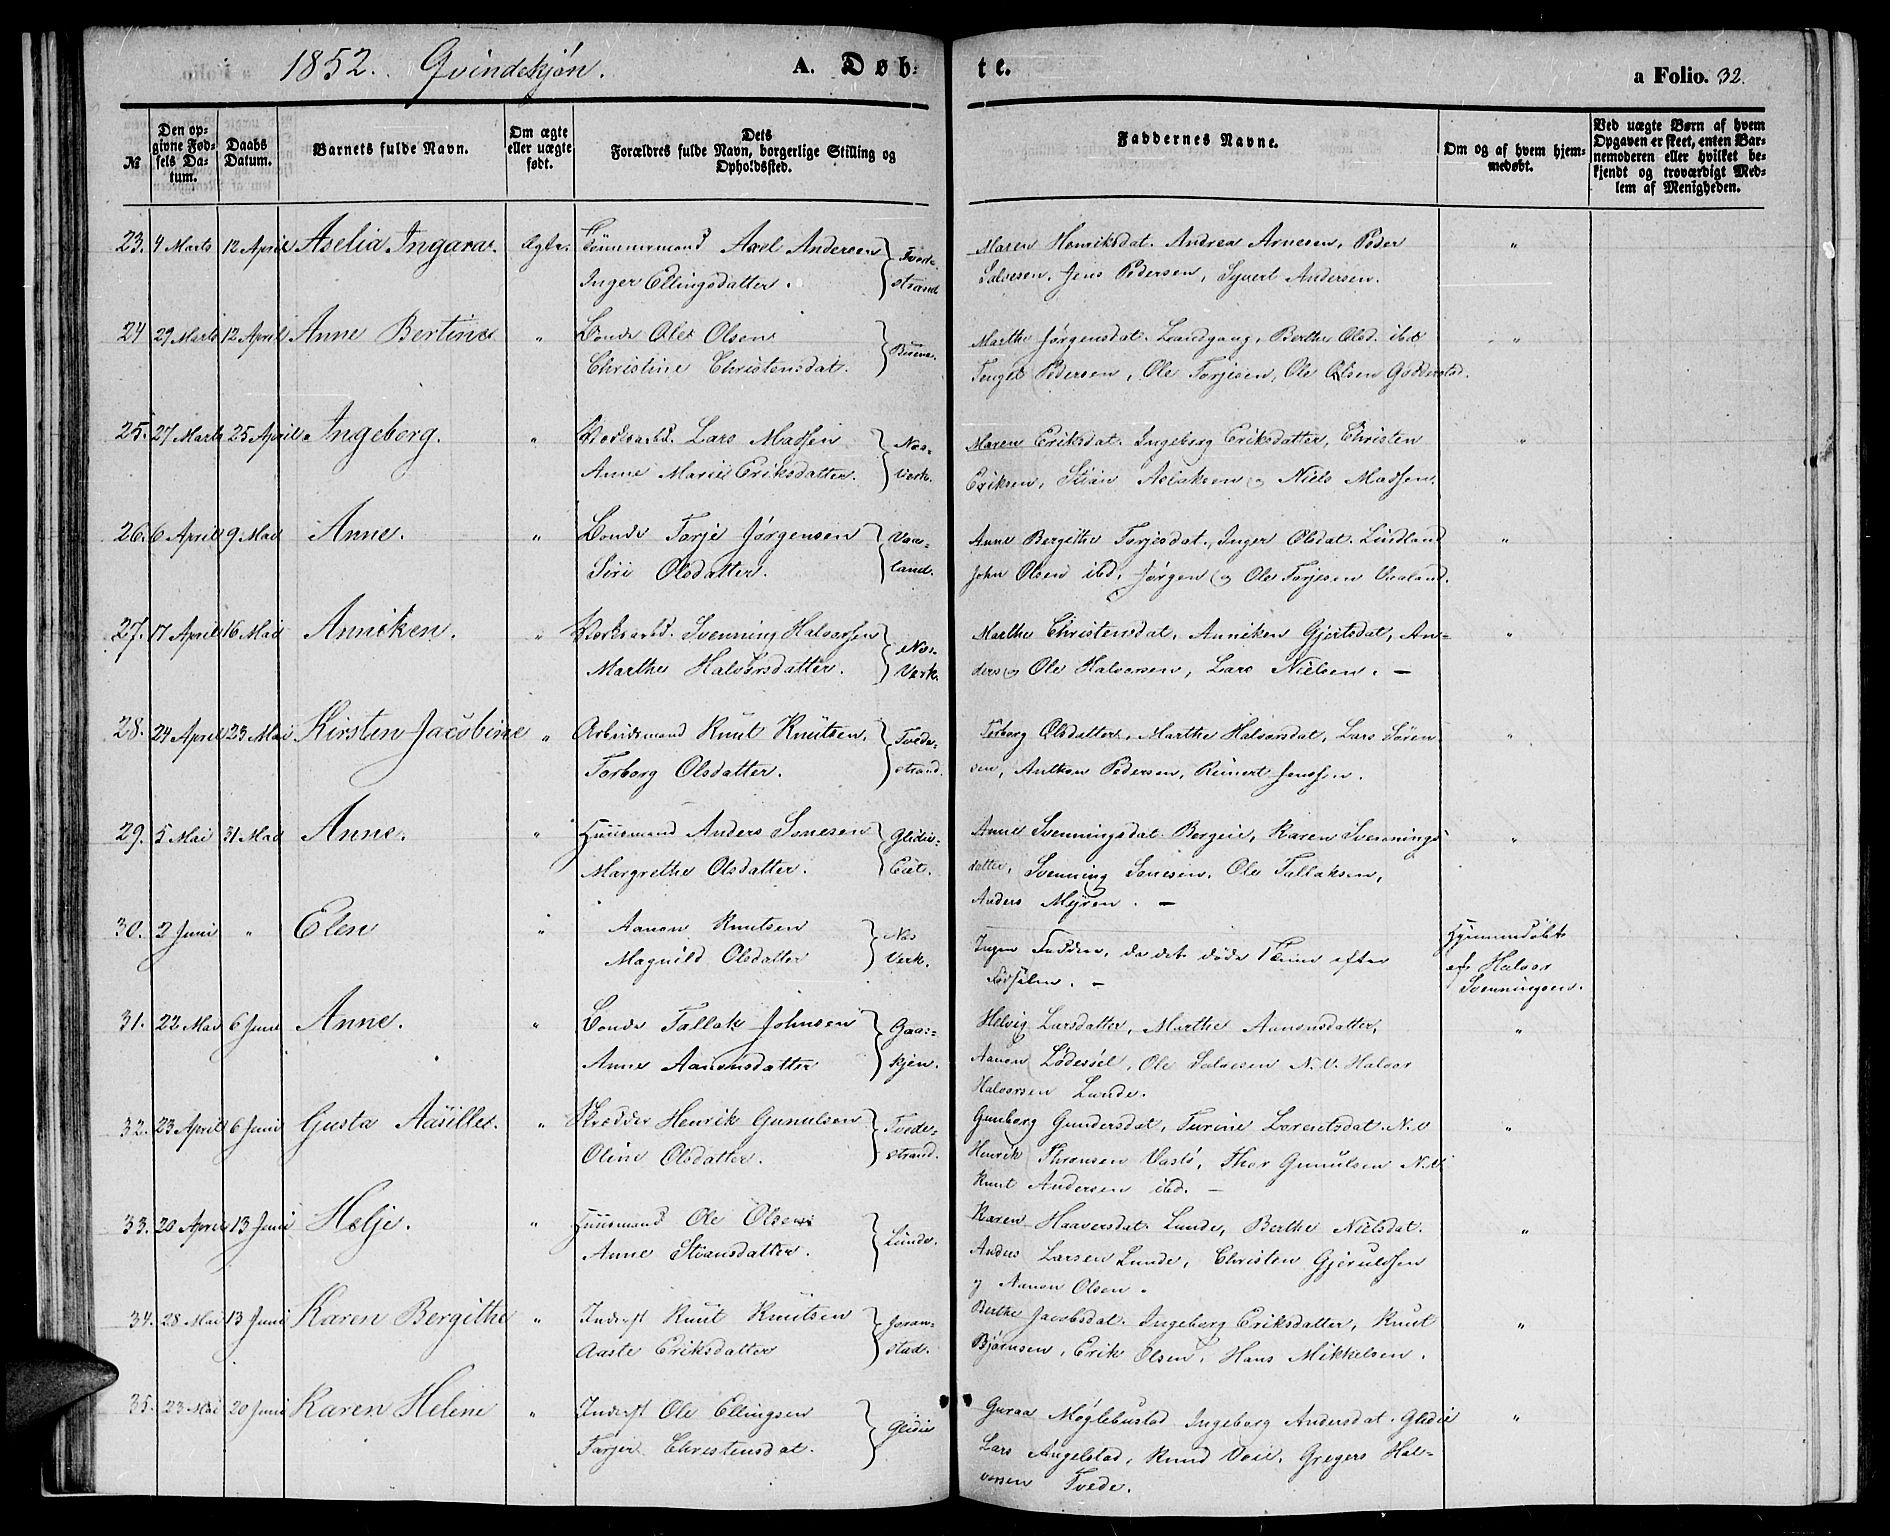 1852. Qvindekjøn. A. Døb- te. a Folio. 32.
№
Den opgivne Fødsels Datum.
Daabs Datum.
Barnets fulde Navn.
Om ægte eller uægte født.
Dets Forældres fulde Navn, borgerlige Stilling og Opholdssted.
Faddernes Navne.
Om og af hvem hjemmedøbt.
Ved uægte Børn af hvem Opgaven er skeet, enten Barnemoderen eller hvilket bekjendt og troværdigt Medlem af Menigheden.
23. 4 Marts 12 April Aselia Ingara. Ægte. Tømmermand Axel Andersen Tvede- Maren Henriksdat. Andrea Arnesen, Peder "
Inger Ellingsdatter. strand Salvesen, Jens Pedersen, Syvert Andersen.
24 29 Marts 12 April Anne Bertine " Bonde Ole Olsen Marthe Jørgensdat. Landgang, Berthe Olsd. ibd "
Christine Christensdat. Pedersen, Ole Torjesen, Ole Olsen Godderstad.
25. 27 Marts 25 April Ingeborg. " Værksarbd. Lars Madsen Næs- Maren Eriksdat. Ingeborg Eriksdatter, Christen "
Anne Marie Eriksdatter. Verk. Eriksen, Stian Aslaksen og Niels Madsen.
26. 6 April 9 Mai Anne. " Bonde Torje Jørgensen Vaa- Anne Bergithe Torjesdat., Inger Olsdat. Lindland "
Siri Olsdatter. land. John Olsen ibd, Jørgen og Ole Torjesen Vaaland.
27. 17 April 16 Mai Anniken. " Værksarbd. Svenning Halvorsen Næs- Marthe Christensdat, Anniken Gjertsdat, An- "
Marthe Halvorsdatter. Verk. ders og Ole Halvorsen, Lars Nielsen. —
28. 24 April 23 Mai Kirsten Jacobine " Arbeidsmand Knut Knutsen, Tvede- Torborg Olsdatter, Marthe Halvorsdat, Lars Søren- "
Torborg Olsdatter. strand. sen, Anthon Pedersen, Reinert Jensen.
29. 5 Mai 31 Mai Anne. " Huusmand Anders Sønesen Glidie- Anne Svenningsdat. Bergeie, Karen Svennings "
Margrethe Olsdatter. datter, Svenning Sønesen, Ole Tallaksen,
Anders Myren. —
30. 2 Juni " Elen " Aanon Knutsen Næs Ingen Faddere, da det døde 1 Time efter Hjemmedøbt
Magnild Olsdatter Verk. Fødselen. — af Halvor
Svenningsen.
31. 22 Mai 6 Juni Anne. " Bonde Tallak Johnsen Gaas- Helvig Larsdatter, Marthe Aanonsdatter, "
Anne Aanonsdatter kjen. Aanon Lødesøl, Ole Salvesen N.V. Halvor
Halvorsen Lunde.
32. 23 April 6 Juni Gusta Aasille. " Skrædder Henrik Gunulsen Tvede- Gunborg Gundersdat, Turine Lorentsdat. N.V "
Oline Olsdatter. strand. Henrik Thronsen Vastø, Thor Gunulsen N.V.
Knut Andersen ibd. —
33. 20 April 13 Juni Helje. " Huusmand Ole Olsen Lunde. Karen Haaversdat. Lunde, Berthe Nielsdat. "
Anne Stiansdatter. Anders Larsen Lunde, Christen Gjeruldsen
og Aanon Olsen.
34. 28 Mai 13 Juni Karen Bergithe " Inderst Knut Knutsen Goran- Berthe Jacobsdat. Ingeborg Eriksdatter, Knut "
Aaste Eriksdatter stad. Bjørnsen, Erik Olsen, Hans Mikkelsen.
35. 23 Mai 20 Juni Karen Helene " Inderst Ole Ellingsen Glidie Guraa Møglebustad Ingeborg Andersdat. Glidie "
Torjer Christensdat. Lars Angelstad, Knud Voie, Gregers Hal-
vorsen Tvede.